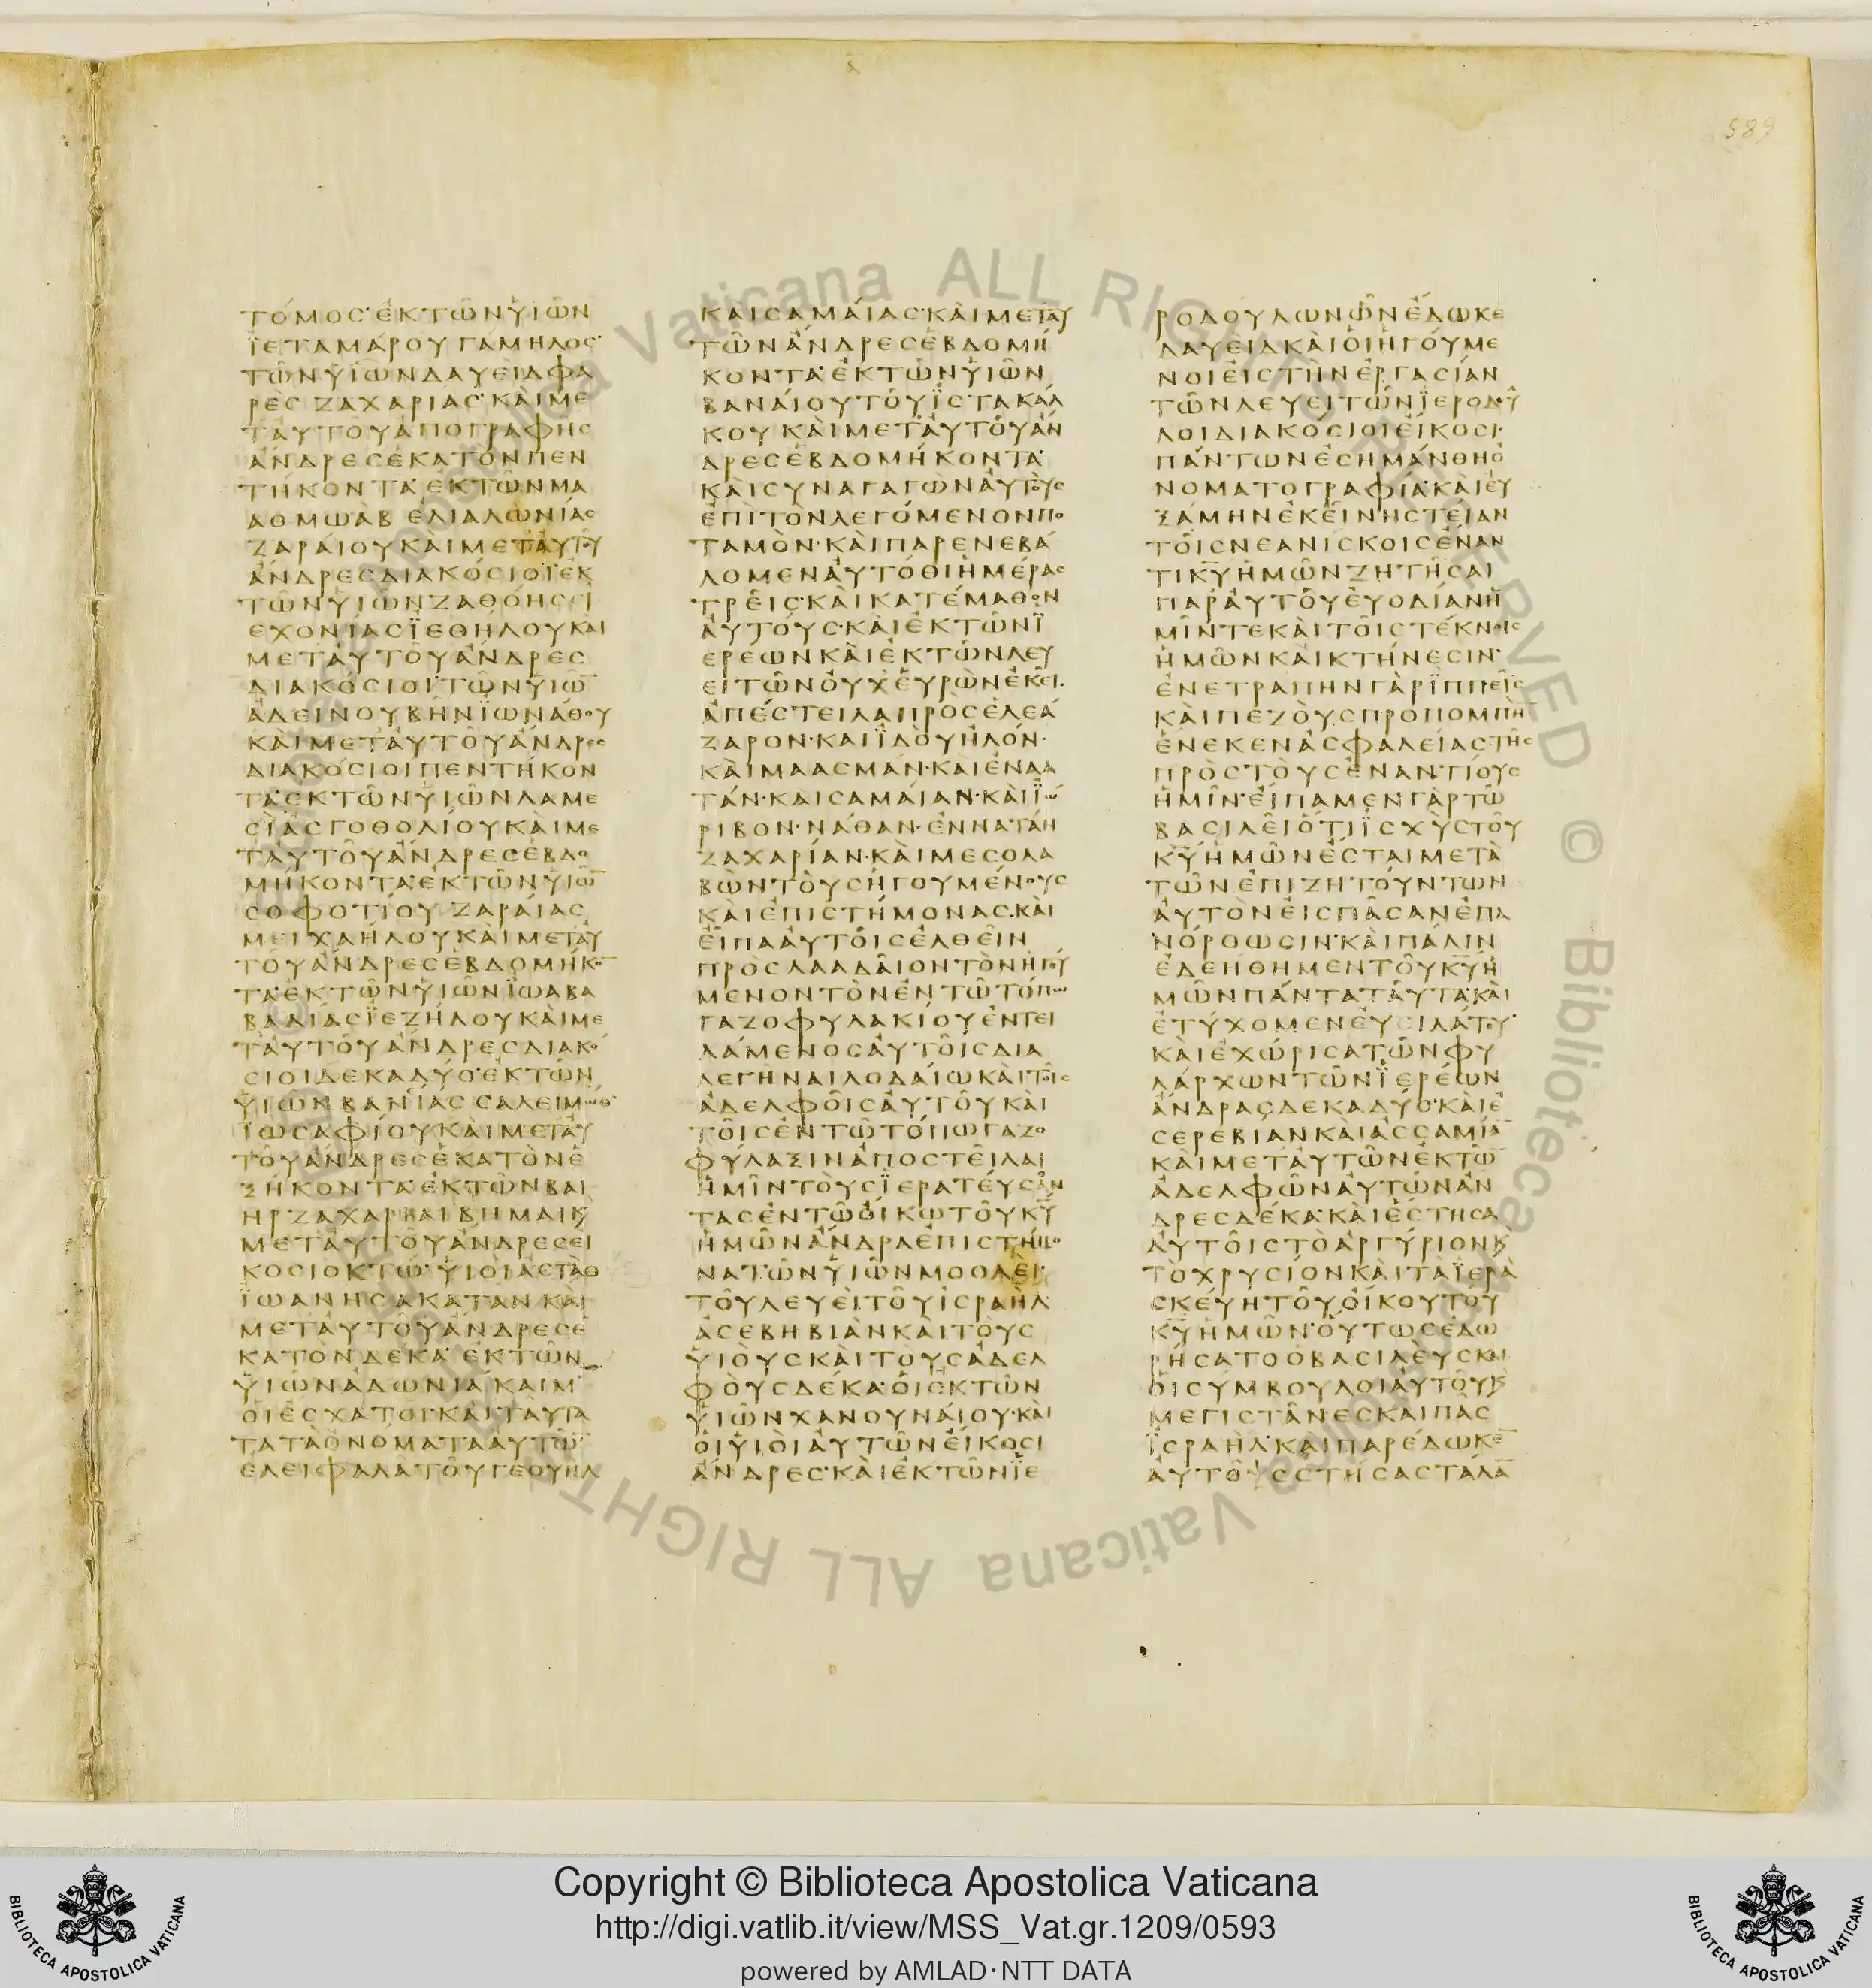 589
ΤΟΜΟΣ ΕΚ ΤΩΝ ΥΙΩΝ
ΙΕΤΑΜΑΡΟΥ ΓΑΜΗΛΟΣ
ΤΩΝ ΥΙΩΝ ΔΑΥΕΙΔ ΦΑ
ΡΕΣ ΖΑΧΑΡΙΑΣ ΚΑΙ ΜΕ
Τ ΑΥΤΟΥ ΑΠΟ ΓΡΑΦΗΣ
ΑΝΔΡΕΣ ΕΚΑΤΟΝ ΠΕΝ
ΤΗΚΟΝΤΑ ΕΚ ΤΩΝ ΜΑ
ΑΘΜΩΑΒ ΕΛΙΑΛΩΝΙΑΣ
ΖΑΡΑΙΟΥ ΚΑΙ ΜΕΤ ΑΥΤΟΥ
ΑΝΔΡΕΣ ΔΙΑΚΟΣΙΟΙ ΕΚ
ΤΩΝ ΥΙΩΝ ΖΑΘΟΗΣ ΕΙ
ΕΧΟΝΙΑΣ ΙΕΘΗΛΟΥ ΚΑΙ
ΜΕΤ ΑΥΤΟΥ ΑΝΔΡΕΣ
ΔΙΑΚΟΣΙΟΙ ΤΩΝ ΥΙΩ̅
ΑΔΕΙΝΟΥ ΒΗΝ ΙΩΝΑΘΟΥ
ΚΑΙ ΜΕΤ ΑΥΤΟΥ ΑΝΔΡΕΣ
ΔΙΑΚΟΣΙΟΙ ΠΕΝΤΗΚΟΝ
ΤΑ ΕΚ ΤΩΝ ΥΙΩΝ ΛΑΜΕ
ΣΙΑΣ ΓΟΘΟΛΙΟΥ ΚΑΙ ΜΕ
Τ ΑΥΤΟΥ ΑΝΔΡΕΣ ΕΒΔΟ
ΜΗΚΟΝΤΑ ΕΚ ΤΩΝ ΥΙΩ̅
ΣΟΦΟΤΙΟΥ ΖΑΡΑΙΑΣ
ΜΕΙΧΑΗΛΟΥ ΚΑΙ ΜΕΤ ΑΥ
ΤΟΥ ΑΝΔΡΕΣ ΕΒΔΟΜΗΚΟ̅
ΤΑ ΕΚ ΤΩΝ ΥΙΩΝ ΙΩΑΒ ΑΒΑ
ΒΑΔΙΑΣ ΙΕΖΗΛΟΥ ΚΑΙ ΜΕ
Τ ΑΥΤΟΥ ΑΝΔΡΕΣ ΔΙΑΚΟ
ΣΙΟΙ ΔΕΚΑ ΔΥΟ ΕΚ ΤΩΝ
ΥΙΩΝ ΒΑΝΙΑΣ ΣΑΛΕΙΜΩΘ
ΙΩΣΑΦΙΟΥ ΚΑΙ ΜΕΤ ΑΥ
ΤΟΥ ΑΝΔΡΕΣ ΕΚΑΤΟΝ Ε
ΞΗΚΟΝΤΑ ΕΚ ΤΩΝ ΒΑΙ
ΗΡ ΖΑΧΑΡΙΑΙ ΒΗΜΑΙ Κ
ΜΕΤ ΑΥΤΟΥ ΑΝΔΡΕΣ ΕΙ
ΚΟΣΙ ΟΚΤΩ ΥΙΟΙ ΑΣΤΑΘ
ΙΩΑΝΗΣ ΑΚΑΤΑΝ ΚΑΙ
ΜΕΤ ΑΥΤΟΥ ΑΝΔΡΕΣ Ε
ΚΑΤΟΝ ΔΕΚΑ ΕΚ ΤΩΝ
ΥΙΩΝ ΑΔΩΝΙΑΚΑΙΜ
ΟΙ ΕΣΧΑΤΟΙ ΚΑΙ ΤΑΥΤΑ
ΤΑ ΤΑ ΟΝΟΜΑΤΑ ΑΥΤΩ̅
ΕΛΕΙΦΑΛΑ ΤΟΥ ΓΕΟΥΗΛ
ΚΑΙ ΣΑΜΑΙΑΣ ΚΑΙ ΜΕΤ ΑΥ
ΤΩΝ ΑΝΔΡΕΣ ΕΒΔΟΜΗ
ΚΟΝΤΑ ΕΚ ΤΩΝ ΥΙΩΝ
ΒΑΝΑΙΟΥ ΤΟΥ ΙΣΤΑΚΑΛ
ΚΟΥ ΚΑΙ ΜΕΤ ΑΥΤΟΥ ΑΝ
ΔΡΕΣ ΕΒΔΟΜΗΚΟΝΤΑ
ΚΑΙ ΣΥΝΑΓΑΓΩΝ ΑΥΤΟΥΣ
ΕΠΙ ΤΟΝ ΛΕΓΟΜΕΝΟΝ ΠΟ
ΤΑΜΟΝ ΚΑΙ ΠΑΡΕΝΕΒΑ
ΛΟΜΕΝ ΑΥΤΟΘΙ ΗΜΕΡΑΣ
ΤΡΕΙΣ ΚΑΙ ΚΑΤΕΜΑΘΟΝ
ΑΥΤΟΥΣ ΚΑΙ ΕΚ ΤΩΝ Ι
ΕΡΕΩΝ ΚΑΙ ΕΚ ΤΩΝ ΛΕΥ
ΕΙΤΩΝ ΟΥΧ ΕΥΡΩΝ ΕΚΕΙ
ΑΠΕΣΤΕΙΛΑ ΠΡΟΣ ΕΛΕΑ
ΖΑΡΟΝ ΚΑΙ ΙΔΟΥΗΛΟΝ
ΚΑΙ ΜΑΑΣΜΑΝ ΚΑΙ ΕΝΑΑ
ΤΑΝ ΚΑΙ ΣΑΜΑΙΑΝ ΚΑΙ ΙΩ
ΡΙΒΟΝ ΝΑΘΑΝ ΕΝΝΑΤΑΝ
ΖΑΧΑΡΙΑΝ ΚΑΙ ΜΕΣΟΛΑ
ΒΩΝ ΤΟΥΣ ΗΓΟΥΜΕΝΟΥΣ
ΚΑΙ ΕΠΙΣΤΗΜΟΝΑΣ ΚΑΙ
ΕΙΠΑ ΑΥΤΟΙΣ ΕΛΘΕΙΝ
ΠΡΟΣ ΛΑΑΔΑΙΟΝ ΤΟΝ ΗΓΟΥ
ΜΕΝΟΝ ΤΟΝ ΕΝ ΤΩ ΤΟΠΩ
ΓΑΖΟΦΥΛΑΚΙΟΥ ΕΝΤΕΙ
ΛΑΜΕΝΟΣ ΑΥΤΟΙΣ ΔΙΑ
ΛΕΓΗΝΑΙ ΛΟΔΑΙΩ ΚΑΙ ΤΟΙΣ
ΑΔΕΛΦΟΙΣ ΑΥΤΟΥ ΚΑΙ
ΤΟΙΣ ΕΝ ΤΩ ΤΟΠΩ ΓΑΖΟ
ΦΥΛΑΞΙΝ ΑΠΟΣΤΕΙΛΑΙ
ΗΜΙΝ ΤΟΥΣ ΙΕΡΑΤΕΥΣΑΝ
ΤΑΣ ΕΝ ΤΩ ΟΙΚΩ ΤΟΥ Κ̅Υ̅
ΗΜΩΝ ΑΝΔΡΑ ΕΠΙΣΤΗΜΟ
ΝΑ ΤΩΝ ΥΙΩΝ ΜΟΟΛΕΙ
ΤΟΥ ΛΕΥΕΙ ΤΟΥ ΙΣΡΑΗΛ
ΑΣΕΒΗΒΙΑΝ ΚΑΙ ΤΟΥΣ
ΥΙΟΥΣ ΚΑΙ ΤΟΥΣ ΑΔΕΛ
ΦΟΥΣ ΔΕΚΑ ΟΙ ΕΚ ΤΩΝ
ΥΙΩΝ ΧΑΝΟΥΝΑΙΟΥ ΚΑΙ
ΟΙ ΥΙΟΙ ΑΥΤΩΝ ΕΙΚΟΣΙ
ΑΝΔΡΕΣ ΚΑΙ ΕΚ ΤΩΝ ΙΕ
ΡΟΔΟΥΛΩΝ ΩΝ ΕΔΩΚΕ
ΔΑΥΕΙΔ ΚΑΙ ΟΙ ΗΓΟΥΜΕ
ΝΟΙ ΕΙΣ ΤΗΝ ΕΡΓΑΣΙΑΝ
ΤΩΝ ΛΕΥΕΙΤΩΝ ΙΕΡΟΔΟΥ
ΛΟΙ ΔΙΑΚΟΣΙΟΙ ΕΙΚΟΣΙ
ΠΑΝΤΩΝ ΕΣΗΜΑΝΘΗ Ο
ΝΟΜΑΤΟΓΡΑΦΙΑ ΚΑΙ ΕΥ
ΞΑΜΗΝ ΕΚΕΙ ΝΗΣΤΕΙΑΝ
ΤΟΙΣ ΝΕΑΝΙΣΚΟΙΣ ΕΝΑΝ
ΤΙ Κ̅Υ̅ ΗΜΩΝ ΖΗΤΗΣΑΙ
ΠΑΡ ΑΥΤΟΥ ΕΥΟΔΙΑΝ Η
ΜΙΝ ΤΕ ΚΑΙ ΤΟΙΣ ΤΕΚΝΟΙΣ
ΗΜΩΝ ΚΑΙ ΚΤΗΝΕΣΙΝ
ΕΝΕΤΡΑΠΗΝ ΓΑΡ ΙΠΠΕΙΣ
ΚΑΙ ΠΕΖΟΥΣ ΠΡΟΠΟΜΠΗ̅
ΕΝΕΚΕΝ ΑΣΦΑΛΕΙΑΣ ΤΗΣ
ΠΡΟΣ ΤΟΥΣ ΕΝΑΝΤΙΟΥΣ
ΗΜΙΝ ΕΙΠΑΜΕΝ ΓΑΡ ΤΩ
ΒΑΣΙΛΕΙ ΟΤΙ ΙΣΧΥΣ ΤΟΥ
Κ̅Υ̅ ΗΜΩΝ ΕΣΤΑΙ ΜΕΤΑ
ΤΩΝ ΕΠΙΖΗΤΟΥΝΤΩΝ
ΑΥΤΟΝ ΕΙΣ ΠΑΣΑΝ ΕΠΑ
ΝΟΡΘΩΣΙΝ ΚΑΙ ΠΑΛΙΝ
ΕΔΕΗΘΗΜΕΝ ΤΟΥ Κ̅Υ̅ Η
ΜΩΝ ΠΑΝΤΑ ΤΑΥΤΑ ΚΑΙ
ΕΤΥΧΟΜΕΝ ΕΥΕΙΛΑΤΟΥ
ΚΑΙ ΕΧΩΡΙΣΑ ΤΩΝ ΦΥ
ΛΑΡΧΩΝ ΤΩΝ ΙΕΡΕΩΝ
ΑΝΔΡΑΣ ΔΕΚΑ ΔΥΟ ΚΑΙ Ε
ΣΕΡΕΒΙΑΝ ΚΑΙ ΑΣΣΑΜΙΑ̅
ΚΑΙ ΜΕΤ ΑΥΤΩΝ ΕΚ ΤΩ̅
ΑΔΕΛΦΩΝ ΑΥΤΩΝ ΑΝ
ΔΡΕΣ ΔΕΚΑ ΚΑΙ ΕΣΤΗΣΑ
ΑΥΤΟΙΣ ΤΟ ΑΡΓΥΡΙΟΝ Κ
ΤΟ ΧΡΥΣΙΟΝ ΚΑΙ ΤΑ ΙΕΡΑ
ΣΚΕΥΗ ΤΟΥ ΟΙΚΟΥ ΤΟΥ
Κ̅Υ̅ ΗΜΩΝ ΟΥΤΩΣ ΕΔΩ
ΡΗΣΑΤΟ Ο ΒΑΣΙΛΕΥΣ ΚΑΙ
ΟΙ ΣΥΜΒΟΥΛΟΙ ΑΥΤΟΥ Κ
ΜΕΓΙΣΤΑΝΕΣ ΚΑΙ ΠΑΣ
ΙΣΡΑΗΛ ΚΑΙ ΠΑΡΕΔΩΚΕ̅
ΑΥΤΟΥΣ ΣΤΗΣΑΣ ΤΑΛΑ̅
Vaticana ALL RIGHTS RESERVED © Biblioteca
Copyright © Biblioteca Apostolica Vaticana
http://digi.vatlib.it/view/MSS_Vat.gr.1209/0593
powered by AMLAD·NTT DATA
BIBLIOTECA APOSTOLICA VATICANA
BIBLIOTECA APOSTOLICA VATICANA